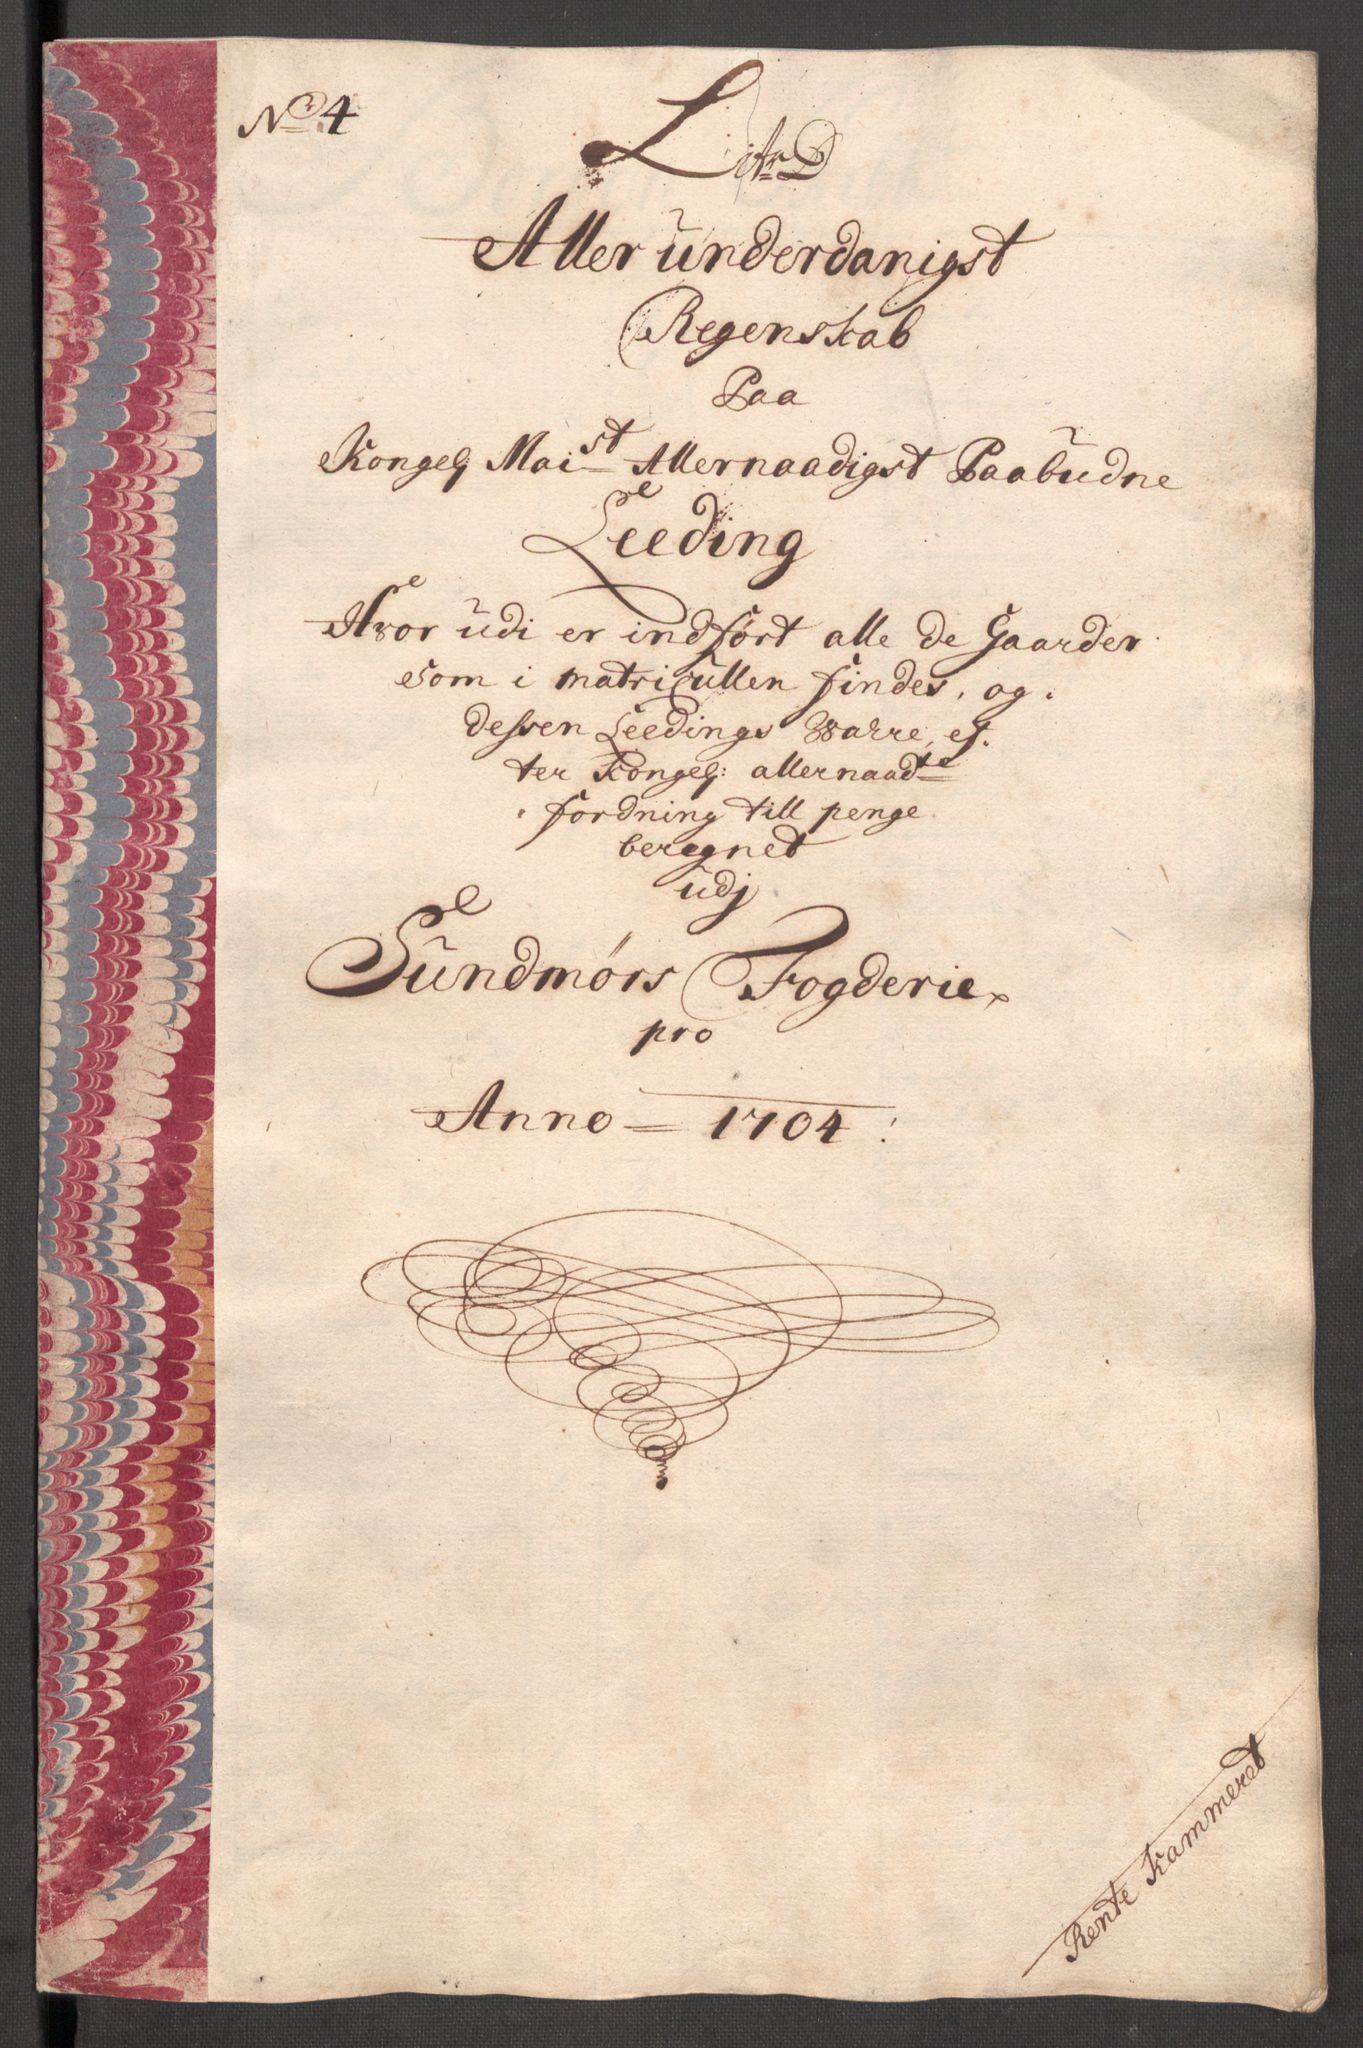 No 4
Litr D
Aller ünderdanigst
Regenskab
Paa
Kongel Maist Allernaadigst Paabüdne
Leeding
Hvor üdi er indført alle de Gaarder
som i matricüllen findes, og
dessen Leedings Warre, ef-
ter Kongel: allernaadte
fordning till penge
beregnet
üdj
Sündmørs Fogderie
pro
Anno = 1704:
Rente Kammeret